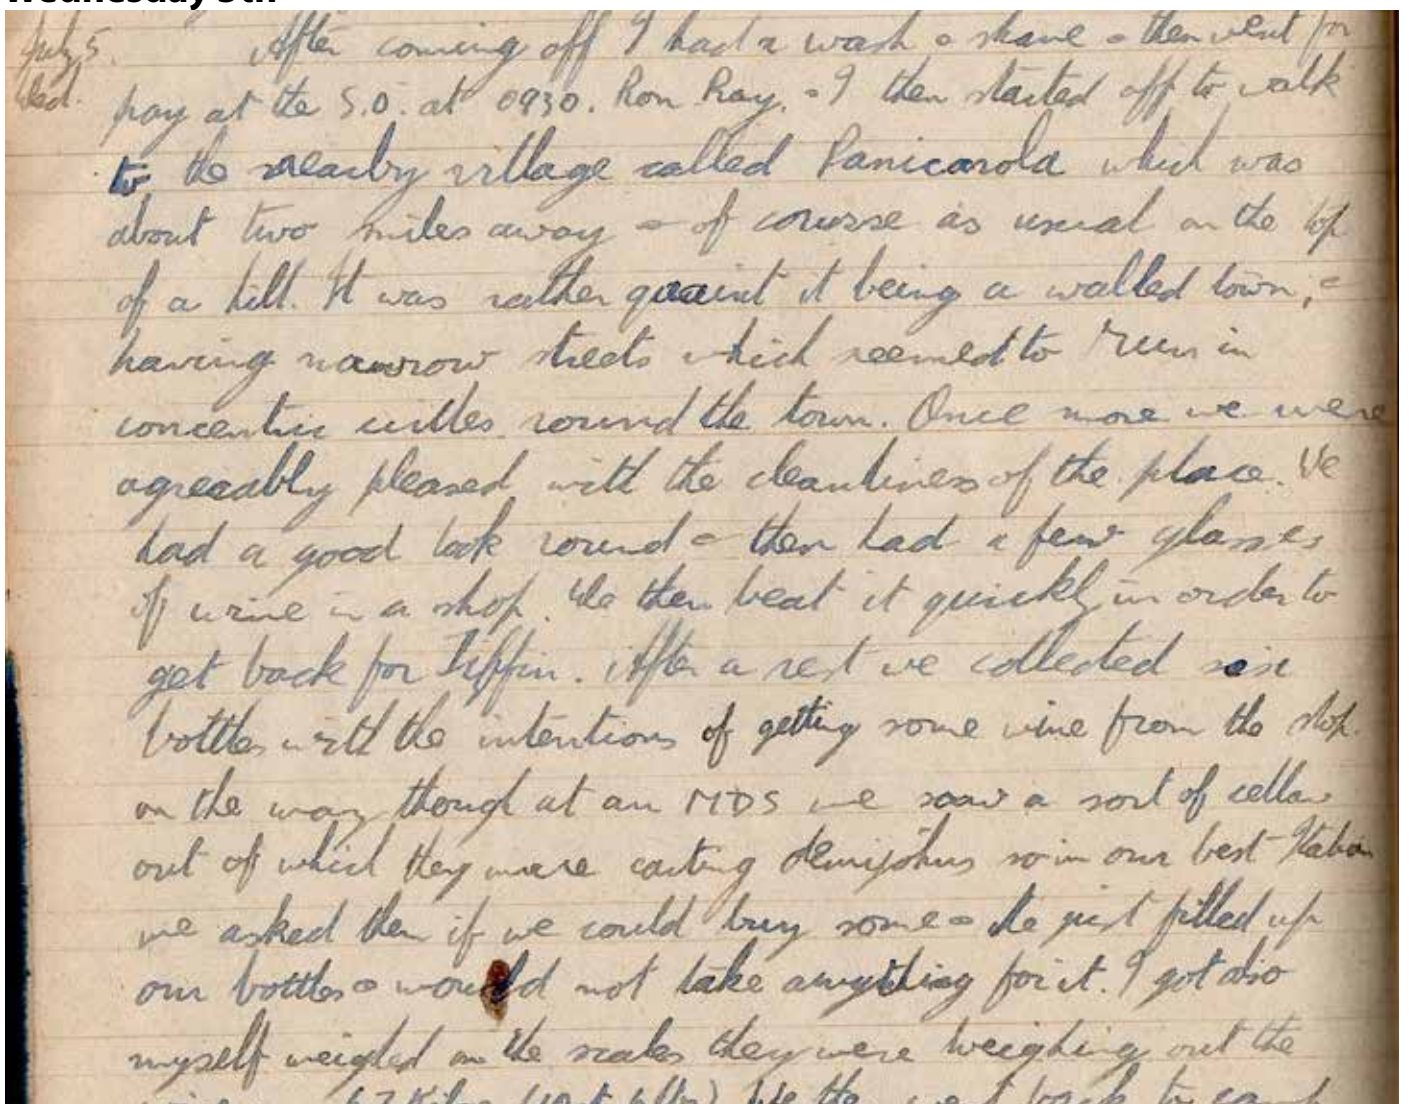 Wednesday 5th
July 5.
Wed.
After coming off I had a wash & shave & then went for
pay at the S.O. at 0930. Ron Ray, & I then started off to walk
to the nearby village called Panicarola which was
about two miles away & of course as usual on the top
of a hill. It was rather quaint it being a walled town, &
having narrow streets which seemed to run in
concentric circles round the town. Once more we were
agreeably pleased with the cleanliness of the place. We
had a good look round & then had a few glasses
of wine in a shop. We then beat it quickly in order to
get back for Tiffin. After a rest we collected six
bottles with the intentions of getting some wine from the shop.
on the way though at an MDS we saw a sort of cellar
out of which they were carting demijohns so in our best Italian
we asked them if we could buy some & he just filled up
our bottles & would not take anything for it. I got also
myself weighed on the scales they were weighing out the
wine 67 Kilos We then went back to camp